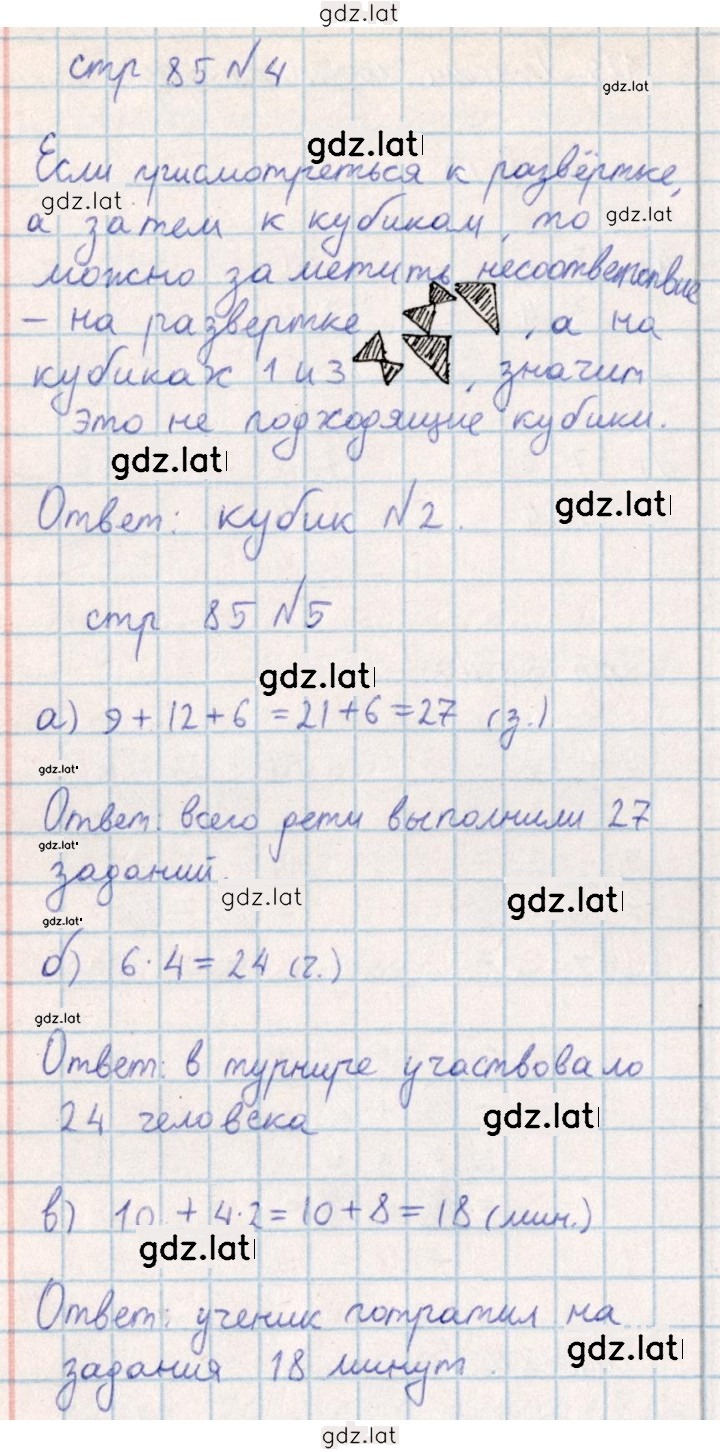 gdz.lat
стр 85 №4
gdz.lat
gdz.lat
Если присмотреться к развёртке,
gdz.lat
gdz.lat
а затем к кубикам, то
можно заметить несоответствие
- на развертке , а на
кубиках 1 и 3 , значит
это не подходящие кубики.
gdz.lat
Ответ: кубик №2.
gdz.lat
стр 85 №5
gdz.lat
а) 9+12+6=21+6=27 (з.)
gdz.lat
Ответ: всего дети выполнили 27
gdz.lat
заданий.
gdz.lat
gdz.lat
gdz.lat
б) 6·4=24 (ч.)
gdz.lat
Ответ: в турнире участвовало
24 человека
gdz.lat
в) 10+4·2=10+8=18 (мин.)
gdz.lat
Ответ: ученик потратил на
задания 18 минут.
gdz.lat
gdz.lat